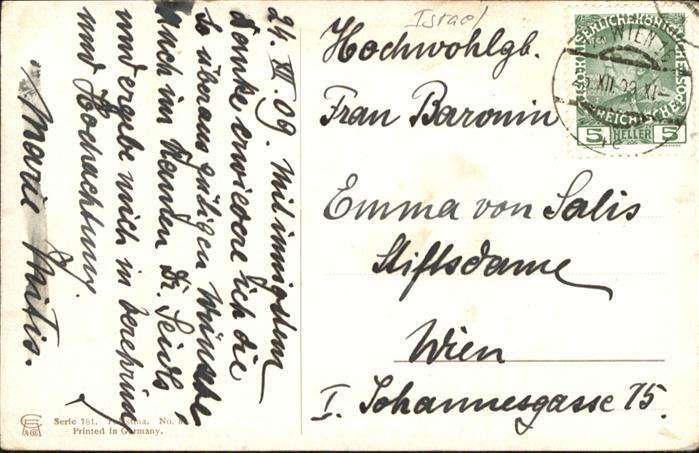 Israel
Hochwohlgb.
Frau Baronin
Emma von Salis
Stiftsdame
Wien
I. Johannesgasse 15.
WIEN
XII 09 XI
5 HELLER 5
24. XII. 09. Mit innigstem
Danke erwiedere ich die
so überaus gütigen Wünsche,
auch im Namen Dr. Seidls,
und ergebe mich in Verehrung
und Hochachtung.
Marie Mitis.
Serie 781. No.
Printed in Germany.